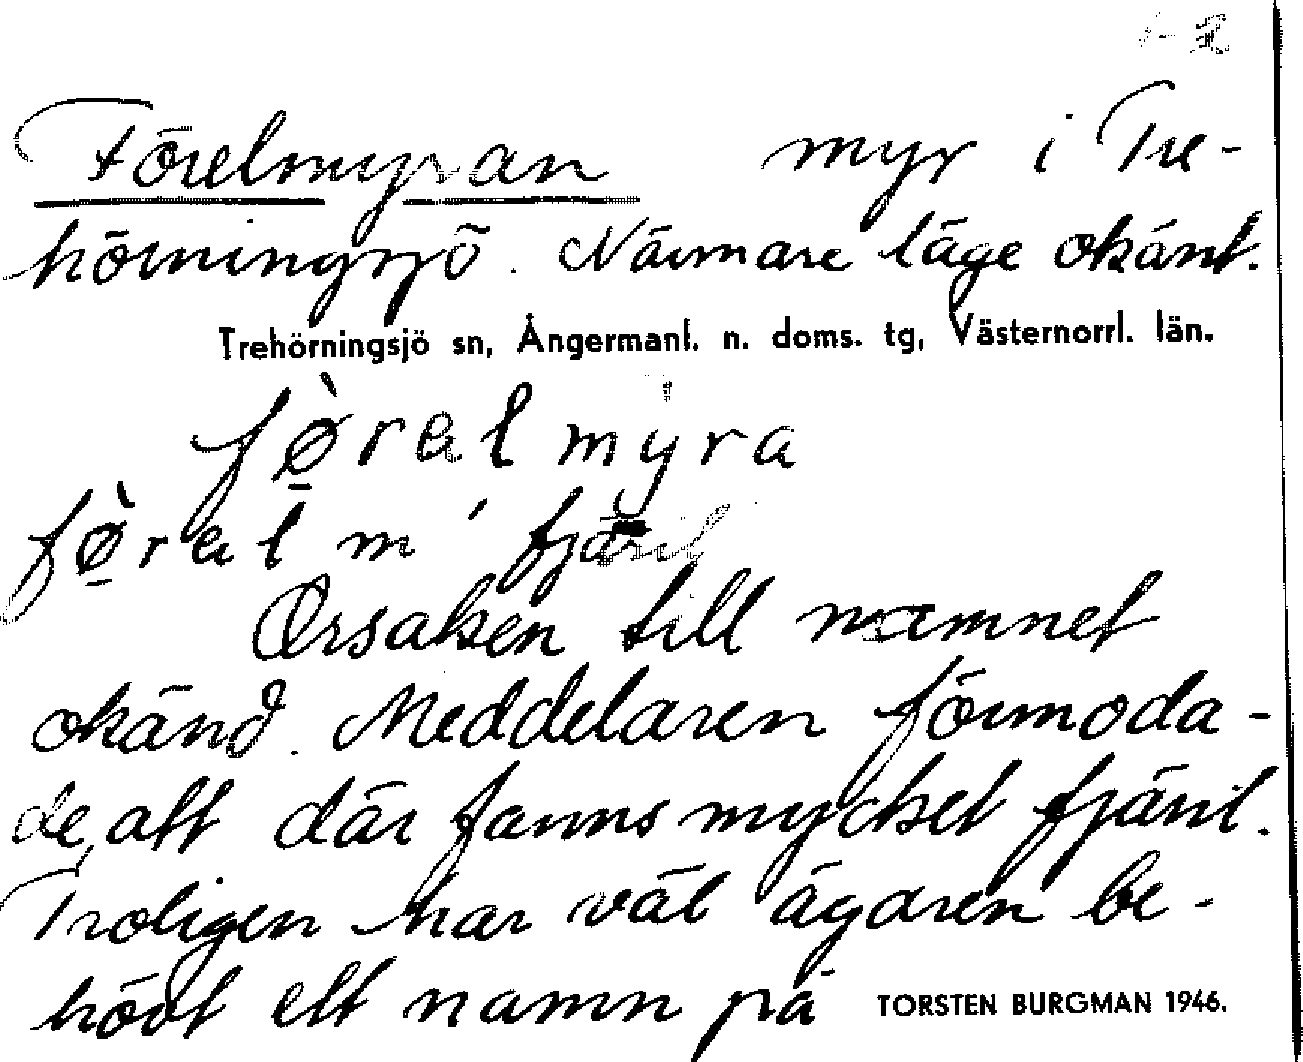 1-2
Förelmyran myr i Tre-
hörningsjö. Närmare läge okänt.
Trehörningsjö sn, Ångermanl. n. doms. tg, Västernorrl. län.
fø̀rəlmyra
fø̀rəl m' fjäril
Orsaken till namnet
okänd. Meddelaren förmoda-
de att där fanns mycket fjäril.
Troligen har väl ägaren be-
hövt ett namn på
TORSTEN BURGMAN 1946.